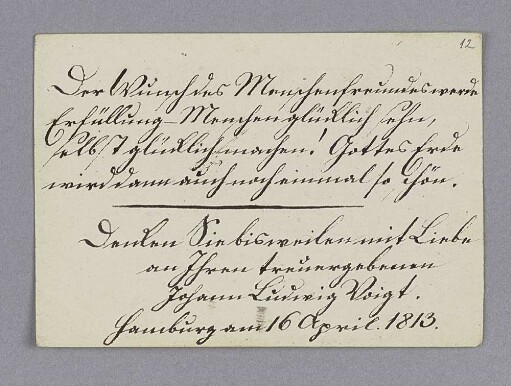 12
Der Wunsch des Menschenfreundes werde
Erfüllung – Menschen glücklich sehn,
selbst glücklich machen! Gottes Erde
wird dann auch noch einmal so schön.
Denken Sie bisweilen mit Liebe
an Ihren treuergebenen
Johann Ludwig Voigt.
Hamburg am 16 April. 1813.